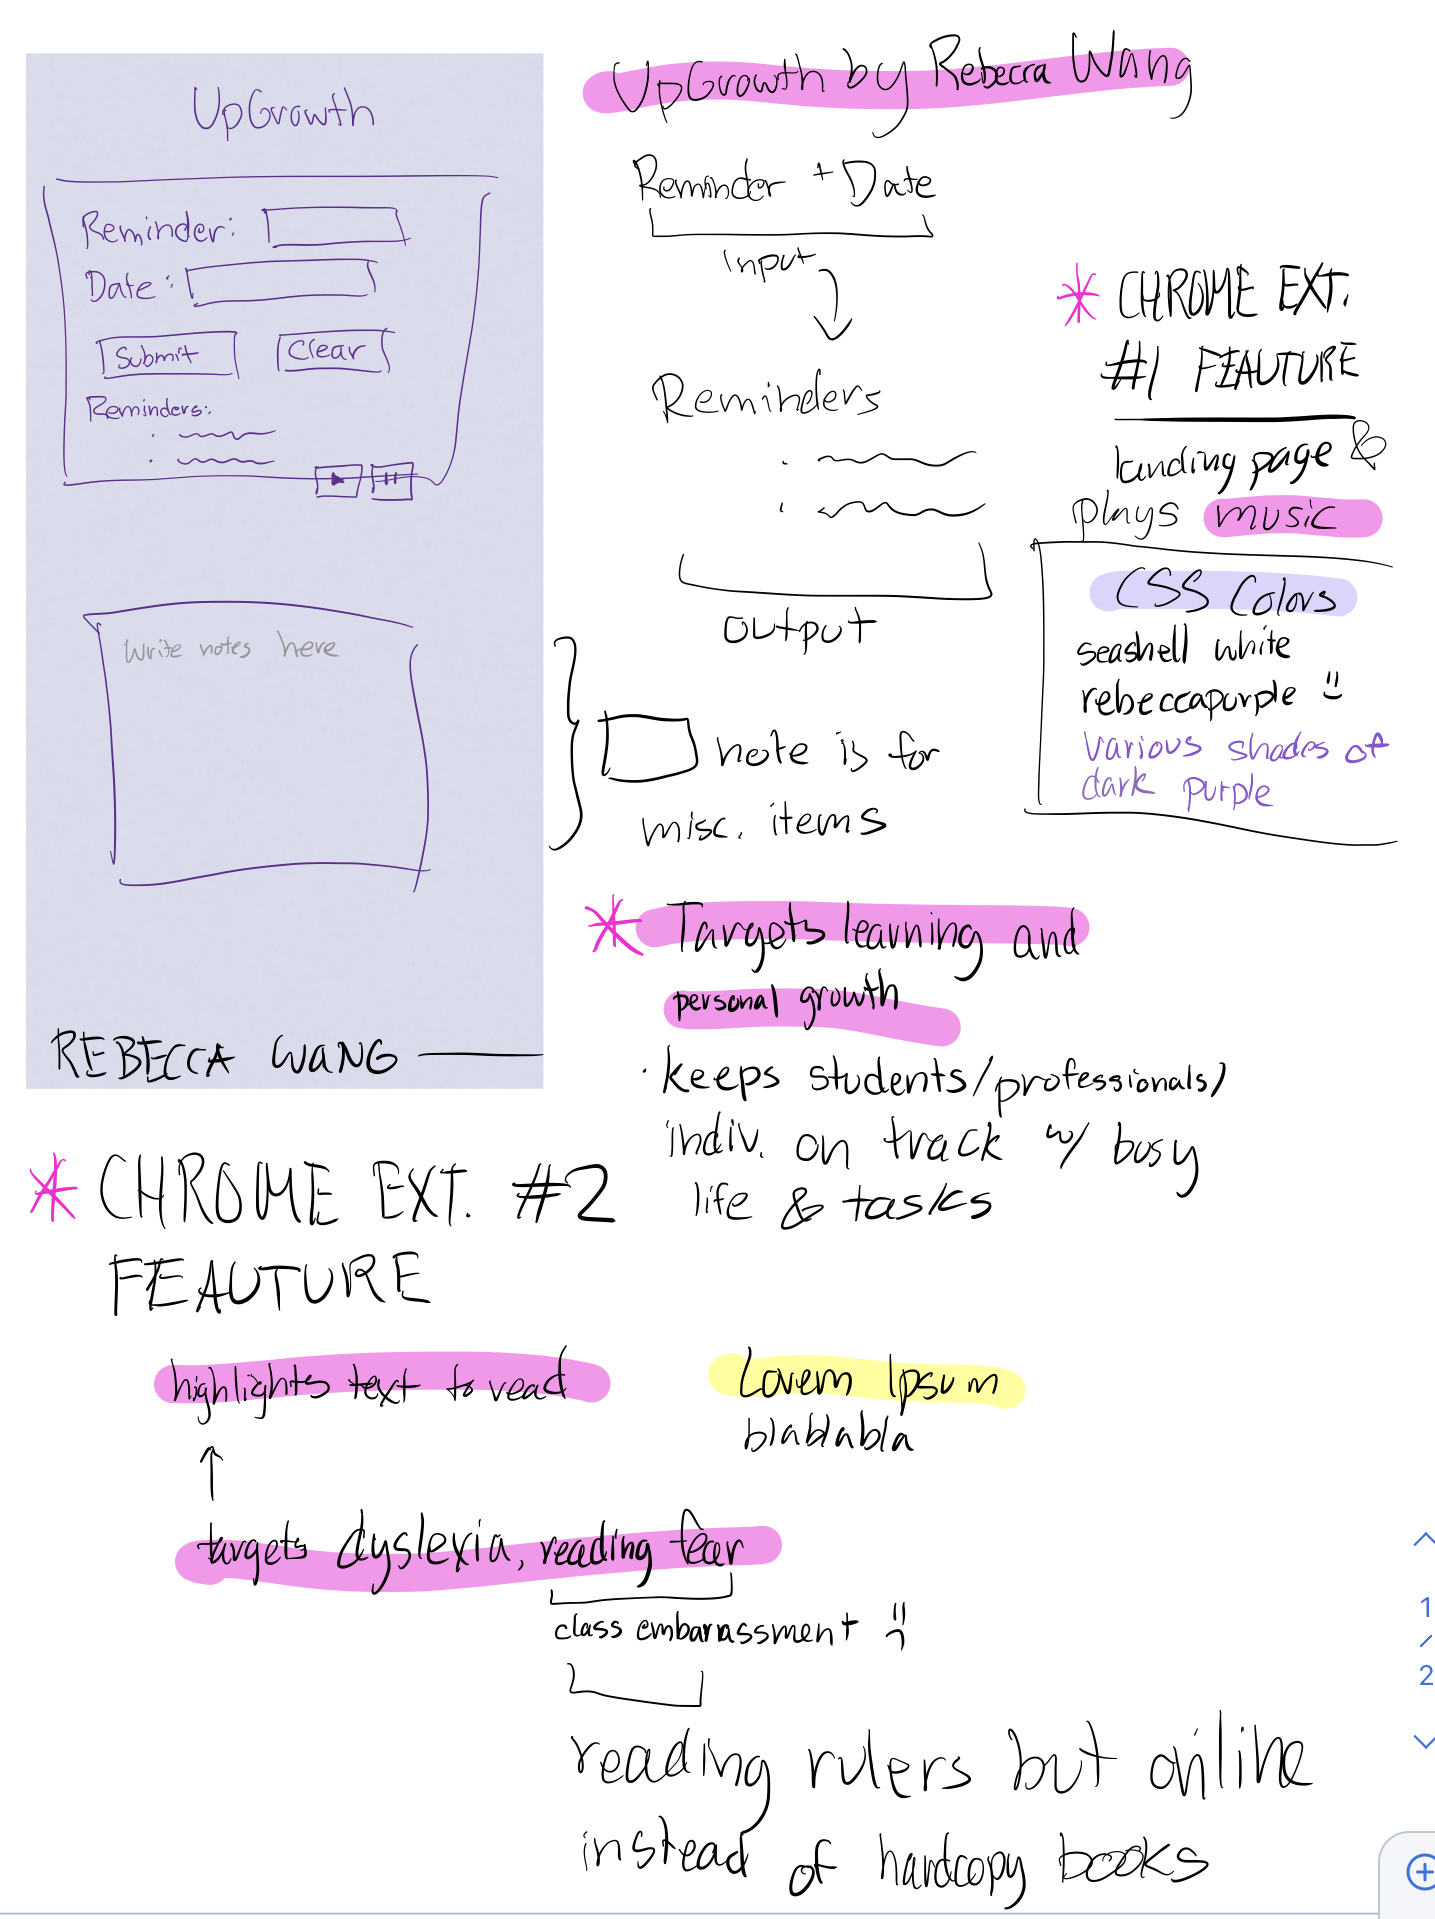 UpGrowth
Reminder:
Date:
Submit Clear
Reminders:
Write notes here
REBECCA WANG
UpGrowth by Rebecca Wang
Reminder + Date
input
Reminders
output
note is for
misc. items
* CHROME EXT.
#1 FEAUTURE
landing page &
plays music
CSS Colors
seashell white
rebeccapurple
various shades of
dark purple
* Targets learning and
personal growth
· keeps students/professionals/
indiv. on track w/ busy
life & tasks
* CHROME EXT. #2
FEAUTURE
highlights text to read
Lorem Ipsum
blablabla
targets dyslexia, reading fear
class embarassment
reading rulers but online
instead of hardcopy books
1
/
2